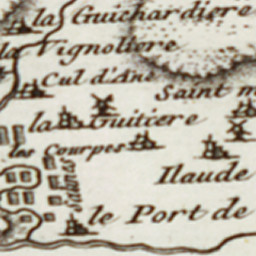 la Guichardiere
la Vignoliere
Cul d'Ane
Saint m
la Guitiere
les Courpes
Ilaude
Salines
le Port de